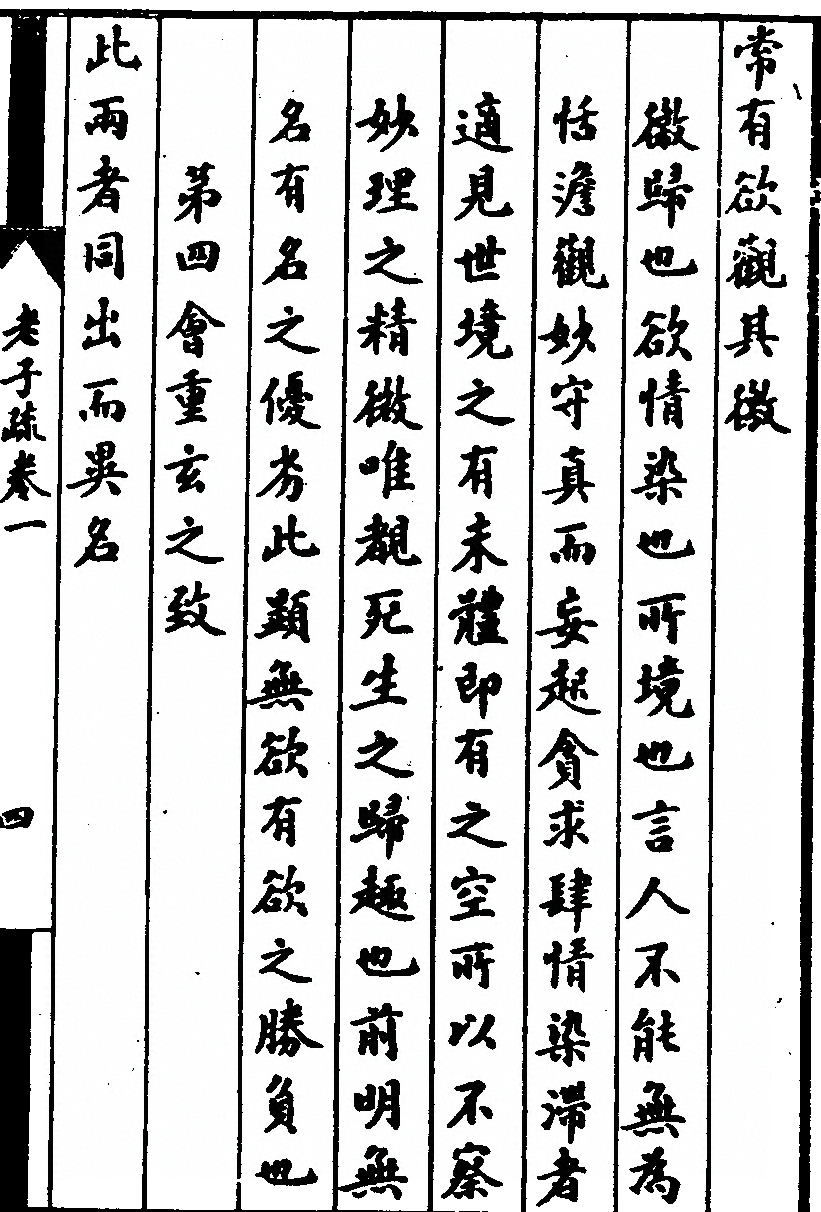 常有欲觀其徼
徼歸也欲情染也所境也言人不能無為
恬澹觀妙守真而妄起貪求肆情染滯者
適見世境之有未體即有之空所以不察
妙理之精微唯覩死生之歸趣也前明無
名有名之優劣此顯無欲有欲之勝負也
第四會重玄之致
此兩者同出而異名
老子疏卷一
四